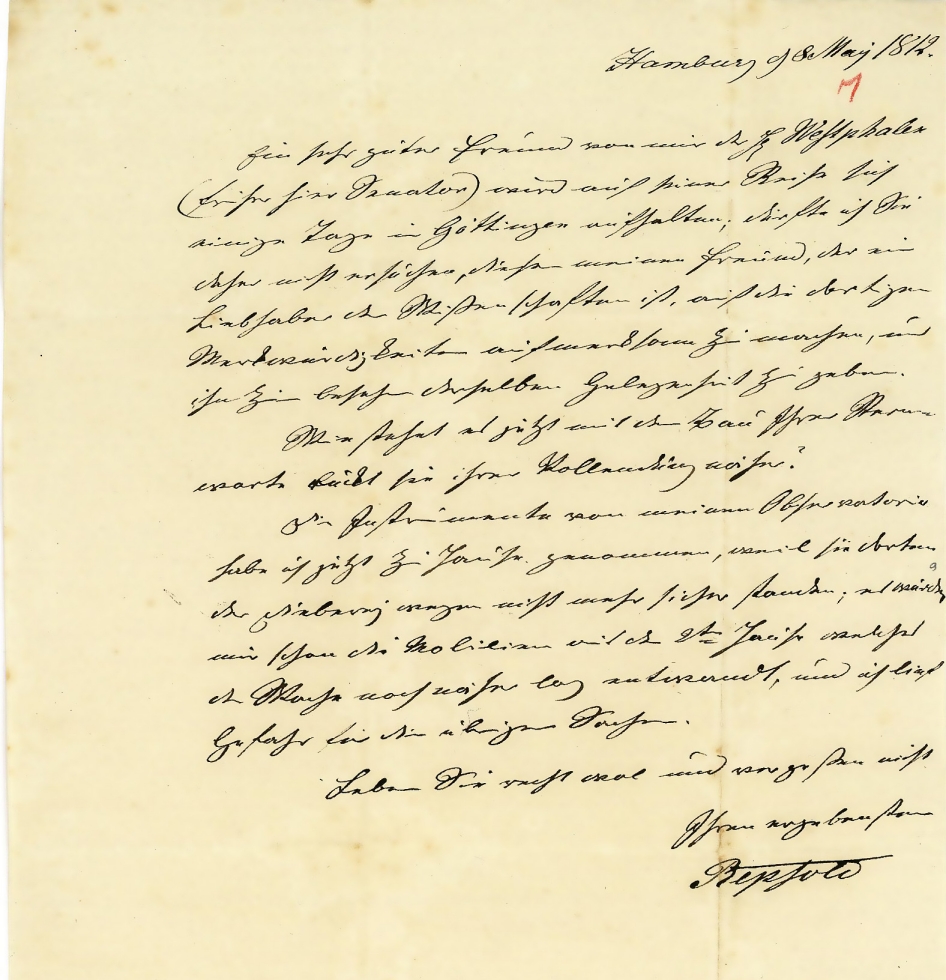 Hamburg d 8 May 1812.
7
Ein sehr guter Freund von mir der H Westphalen
(früher hier Senator) wird auf seiner Reise sich
einige Tage in Göttingen aufhalten; dürfte ich Sie
daher nicht ersuchen, diesen meinen Freund, der ein
Liebhaber der Wißenschaften ist, auf die dortigen
Merkwürdigkeiten aufmerksam zu machen, und
ihn zum besehen derselben Gelegenheit zu geben.
Wie stehet es jetzt mit dem Bau Ihrer Stern
warte rückt sie ihrer Vollendung näher?
Die Instrumente von meinem Observatorio
habe ich jetzt zu Hause genommen, weil sie dorten
der Dieberey wegen nicht mehr sicher standen; es wurden
mir schon die Mobilien aus dem 2ten Hause welches
der Wache noch näher lag entwandt, und ich lief
Gefahr für die übrigen Sachen.
Leben Sie recht wol und vergeßen nicht
Ihren ergebensten
Repsold